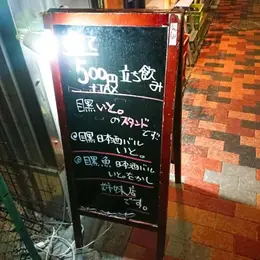 500円立ち飲み
+TAX
目黒いと。
のスタンドです!
@目黒 日本酒バル
いと。
@目黒 魚 日本酒バル
いと。たかし
姉妹店
です。